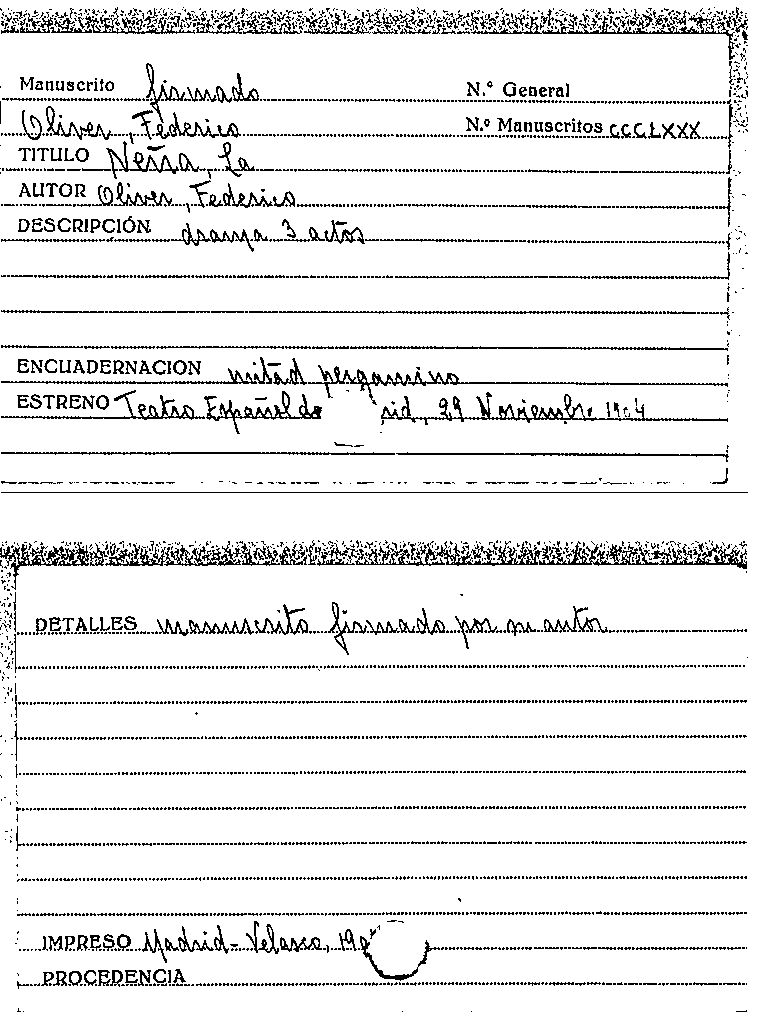 Manuscrito firmado
N.º General
Oliver, Federico
N.º Manuscritos CCCLXXX
TITULO Neña, La
AUTOR Oliver, Federico
DESCRIPCIÓN drama 3 actos
ENCUADERNACION mitad pergamino
ESTRENO Teatro Español de rid, 29 Noviembre 1904
DETALLES manuscrito firmado por su autor
IMPRESO Madrid-Velasco, 190
PROCEDENCIA